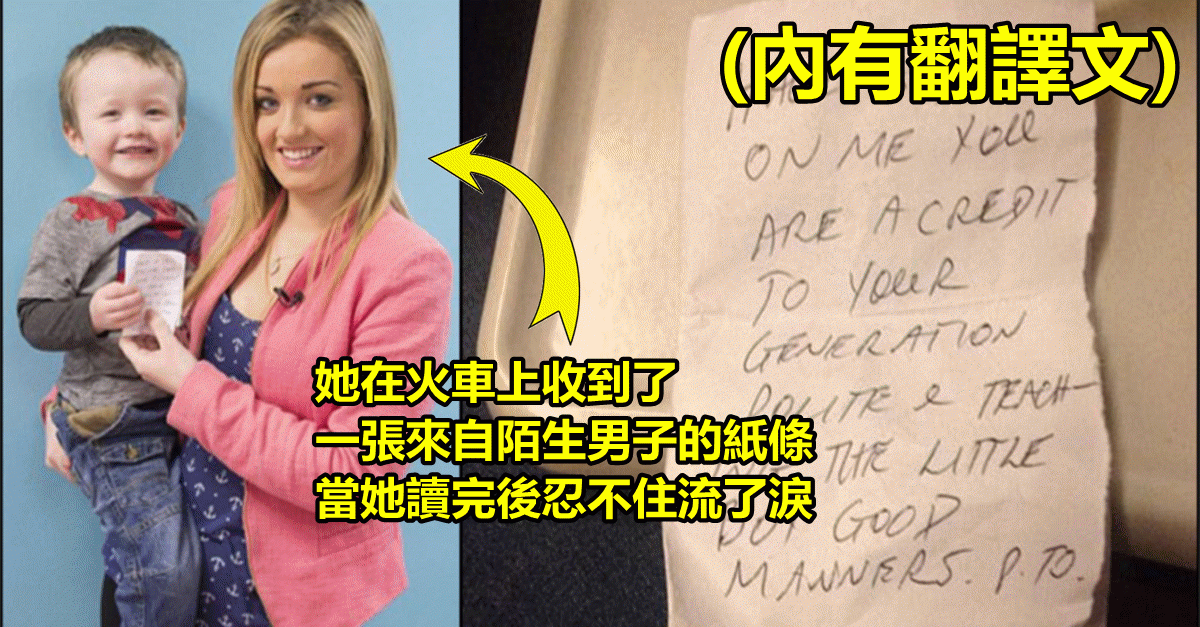 (內有翻譯文)
ON ME YOU
ARE A CREDIT
TO YOUR
GENERATION
POLITE & TEACH-
THE LITTLE
BOY GOOD
MANNERS. P.TO.
她在火車上收到了
一張來自陌生男子的紙條
當她讀完後忍不住流了淚